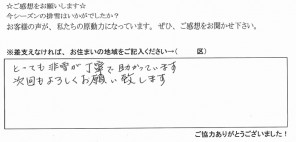 ☆ご感想をお願いします☆
今シーズンの排雪はいかがでしたか？
お客様の声が、私たちの原動力になっています。ぜひ、ご感想をお聞かせ下さい。
※差支えなければ、お住まいの地域をご記入ください→（　　　区）
とっても排雪が丁寧で助かっています
次回もよろしくお願い致します
ご協力ありがとうございました！